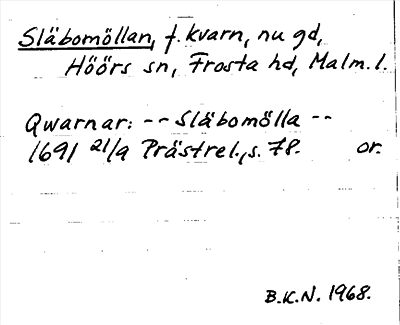 Släbomöllan, f. kvarn, nu gd,
Höörs sn, Frosta hd, Malm. l.
Qwarnar: -- Släbomölla --
1691 21/9 Prästrel., s. 78. or.
B.K.N. 1968.